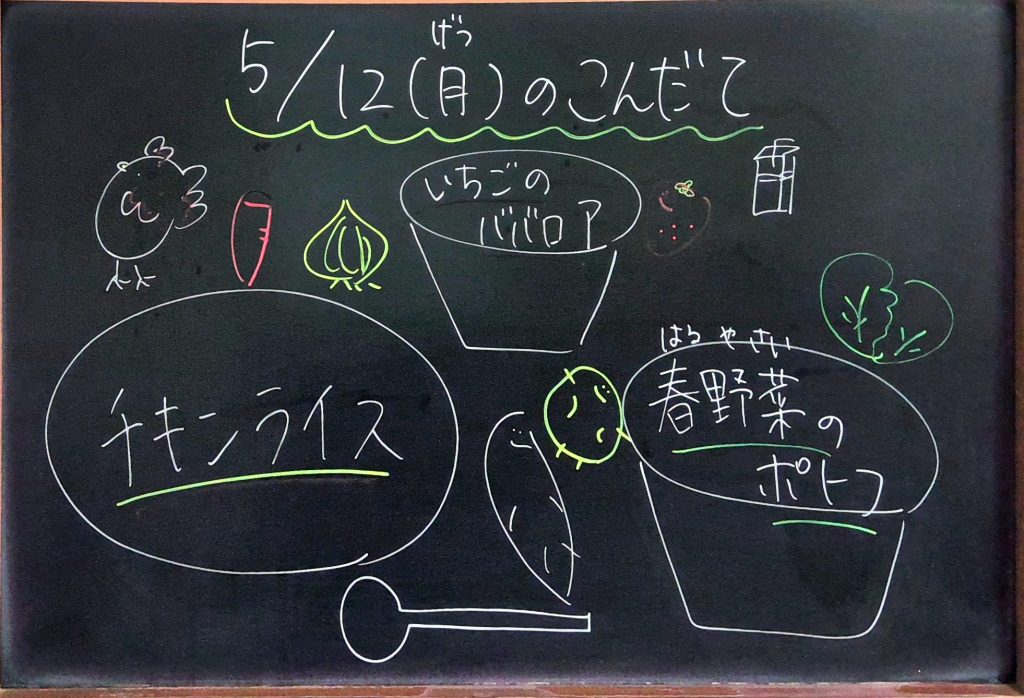 げつ
5/12(月)のこんだて
いちごの
ババロア
チキンライス
はるやさい
春野菜の
ポトフ